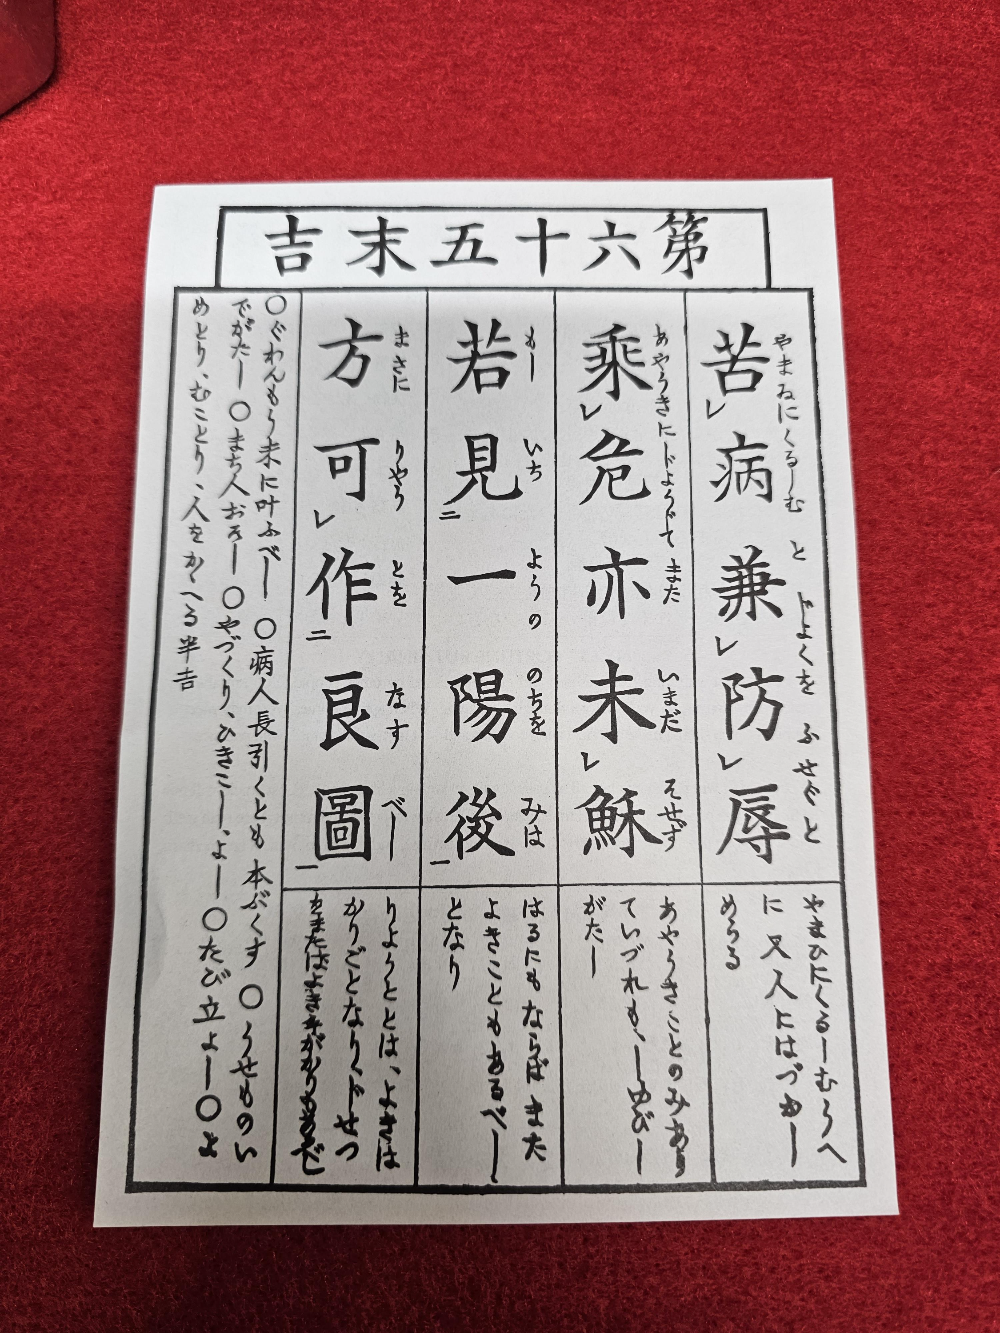 第六十五末吉
やまゐにくるしむ と ぢよくを ふせぐと
苦レ病兼レ防レ辱
やまひにくるしむうへ
に又人にはづかし
めらる
あやうきにじようじて また いまだ そせず
乗レ危亦未レ穌
あやうきことのみあり
ていづれも、しゆびし
がたし
もし いち ようの のちを みは
若見二一陽後一
はるにもならばまた
よきこともあるべし
となり
まさに りやう とを なす べし
方可レ作二良圖一
りようととは、よきは
かりごとなりくじせつ
をまたばよき
〇ぐわんもう末に叶ふべし 〇病人長引くとも本ぶくす 〇うせものい
でがたし 〇まち人おそし 〇やづくり、ひきこし、よし 〇たび立よし 〇よ
めとり、むことり、人をかゝへる半吉